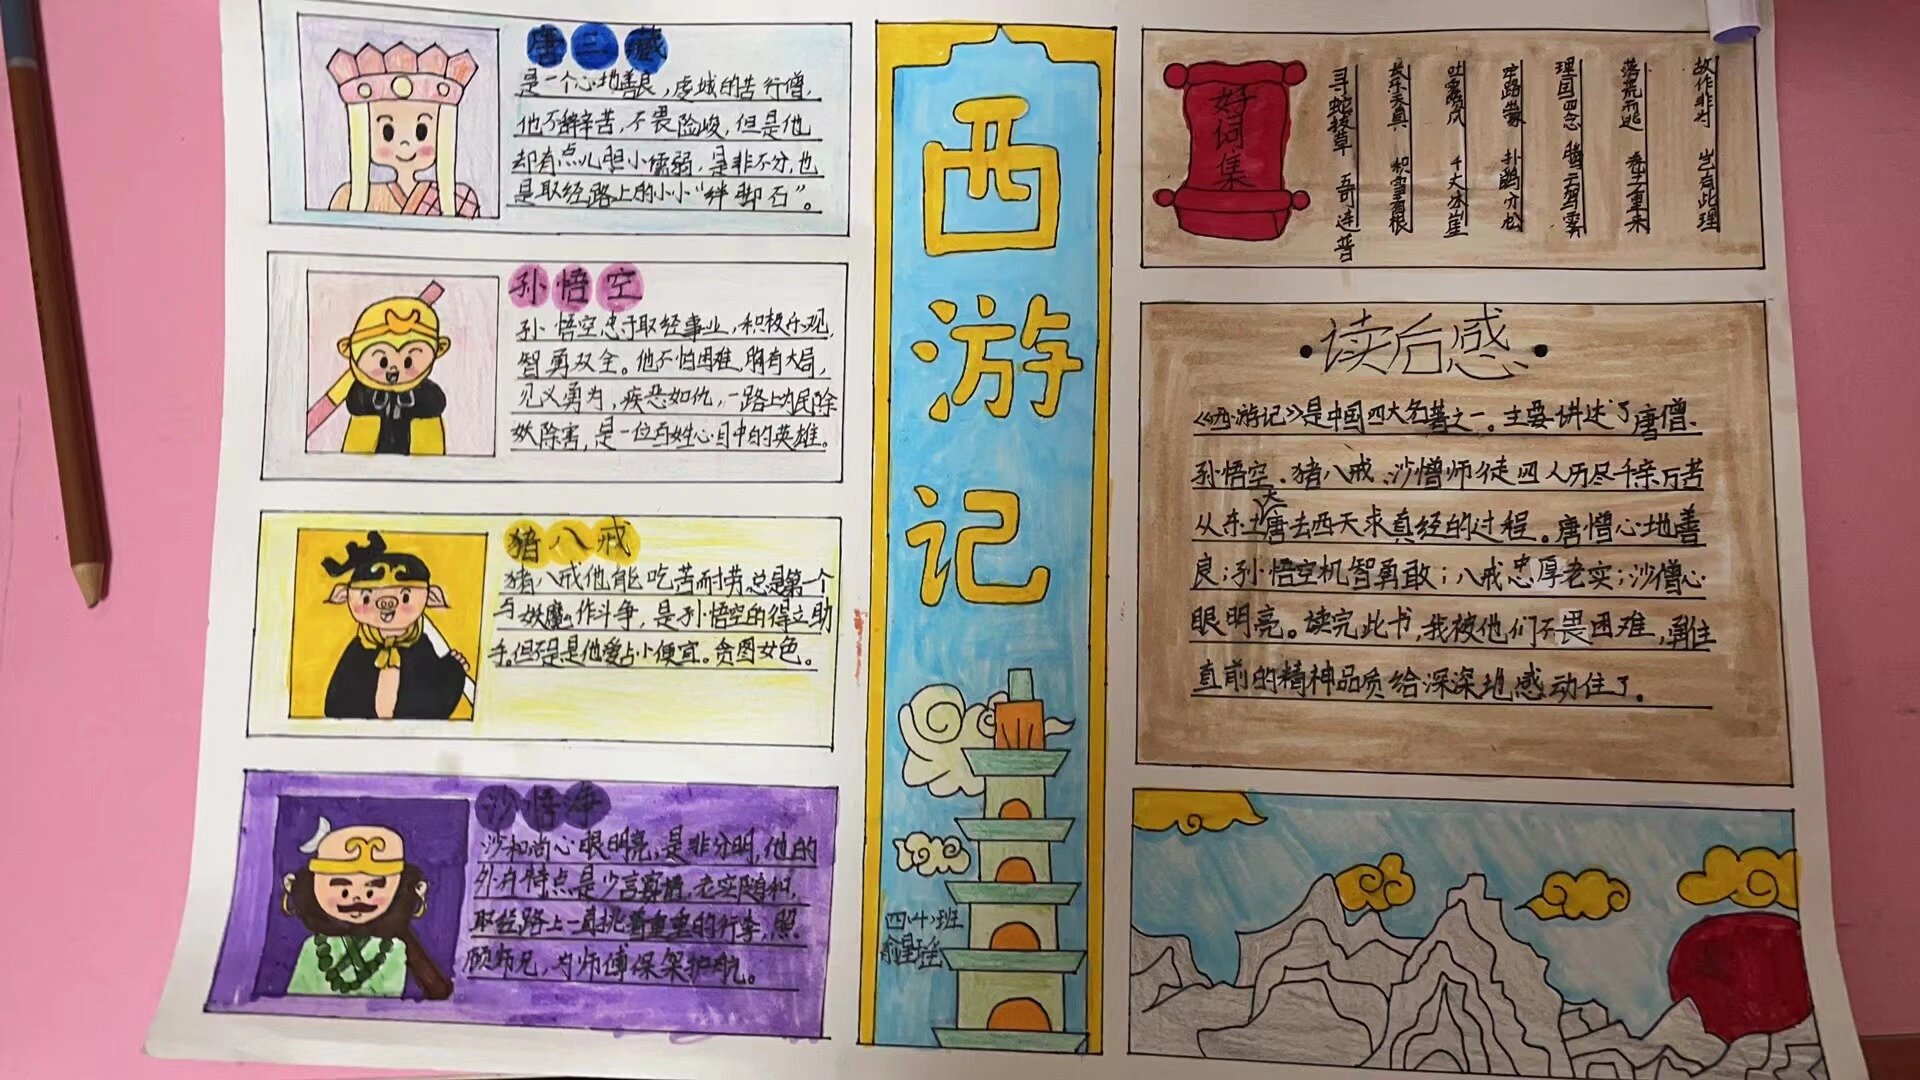 唐三藏
是一个心地善良，虔城的苦行僧，
他不辞辛苦，不畏险峻，但是他
却有点儿胆小懦弱，是非不分，也
是取经路上的小小“绊脚石”。
孙悟空
孙悟空忠于取经事业，积极乐观，
智勇双全。他不怕困难，拥有大局，
见义勇为，疾恶如仇，一路上为民除
妖除害，是一位百姓心目中的英雄。
猪八戒
猪八戒他能吃苦耐劳总是第一个
与妖魔作斗争，是孙悟空的得立助
手。但不足是他爱占小便宜。贪图女色。
沙悟净
沙和尚心眼明亮，是非分明，他的
外在特点是少言寡语，老实随和，
取经路上一直挑着重重的行李，照
顾师兄，为师傅保架护航。
西游记
四(4)班
俞星瑶
好词集
故作非对 岂有此理
落荒而逃 卷土重来
理国四念 腾云驾雾
牢路蒙 扑鹊分松
吐雾喷风 千丈冰崖
长乐天真 积雪有根
寻蛇拨草
读后感
《西游记》是中国四大名著之一。主要讲述了唐僧、
孙悟空、猪八戒、沙僧师徒四人历尽千亲万苦
从东土大唐去西天求真经的过程。唐僧心地善
良；孙悟空机智勇敢；八戒忠厚老实；沙僧心
眼明亮。读完此书，我被他们不畏困难，勇往
直前的精神品质给深深地感动住了。